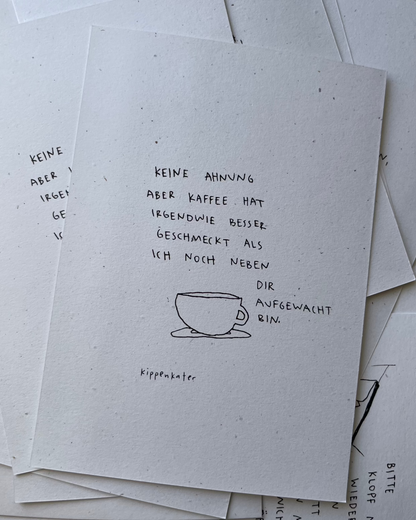 KEINE AHNUNG
ABER KAFFEE HAT
IRGENDWIE BESSER
GESCHMECKT ALS
ICH NOCH NEBEN
DIR
AUFGEWACHT
BIN.
kippenkater
KEINE
ABER
BITTE
KLOPF
WIEDER